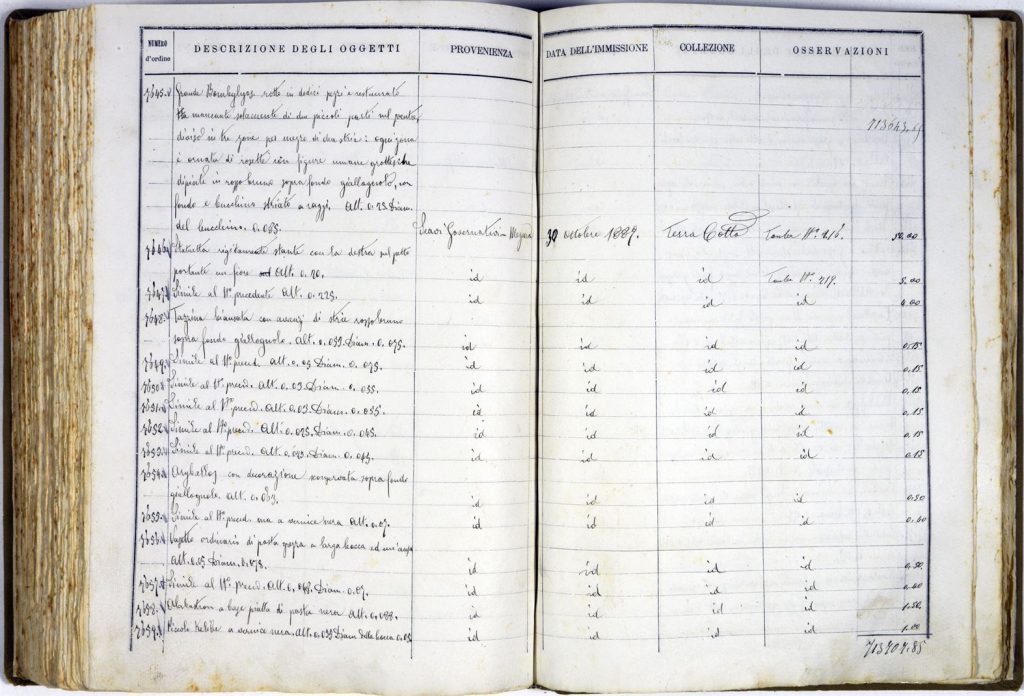 NUMERO d'ordine DESCRIZIONE DEGLI OGGETTI PROVENIENZA DATA DELL'IMMISSIONE COLLEZIONE OSSERVAZIONI
7645. Grande Bombylyos rotto in dodici pezzi e restaurato
mancante solamente di due piccoli parti nel
diviso in tre zone per mezzo di due strie: ogni zona
è ornata di rosette con figure umane grottesche
dipinte in rosso bruno sopra fondo giallognolo, con
fondo e bucchino striato a raggi. Alt. 0.25 Diam.
del bucchino. 0.065. Scavi Governativi Megara 30 ottobre 1889. Terra Cotta Tomba Nº 216. 50,00
7646 Statuetta rigidamente stante con la destra sul petto
portante un fiore Alt. 0.20. id id id Tomba Nº 217. 5.00
7647 Simile al Nº precedente Alt. 0.225. id id id id 4.00
7648. Tazzina biansata con avanzi di strie rosso bruno
sopra fondo giallognolo. Alt. 0.033. Diam. 0.075. id id id id 0.15
7649. Simile al Nº preced. Alt. 0.03 Diam. 0.075. id id id id 0.15
7650. Simile al Nº preced. Alt. 0.03 Diam. 0.055. id id id id 0.15
7651. Simile al Nº preced. Alt. 0.03. Diam. 0.055. id id id id 0.15
7652. Simile al Nº preced. Alt. 0.025. Diam. 0.045. id id id id 0.15
7653. Simile al Nº preced. Alt. 0.023. Diam. 0.043. id id id id 0.15
7654. Aryballos con decorazione conservata sopra fondo
giallognolo. Alt. 0.063. id id id id 0.50
7655. Simile al Nº preced. ma a vernice nera Alt. 0.07. id id id id 0.60
7656. Vasetto ordinario di pasta grezza a larga bocca ad un'ansa
Alt. 0.05 Diam. 0.073. id id id id 0.50
7657. Simile al Nº preced. Alt. 0.068. Diam. 0.07. id id id id 0.40
7658. Alabastron a base piatta di pasta nera. Alt. 0.093. id id id id 1.50
7659. Piccola Kelebe a vernice nera. Alt. 0.053 Diam della bocca 0.05 id id id id 1.00
713707.85